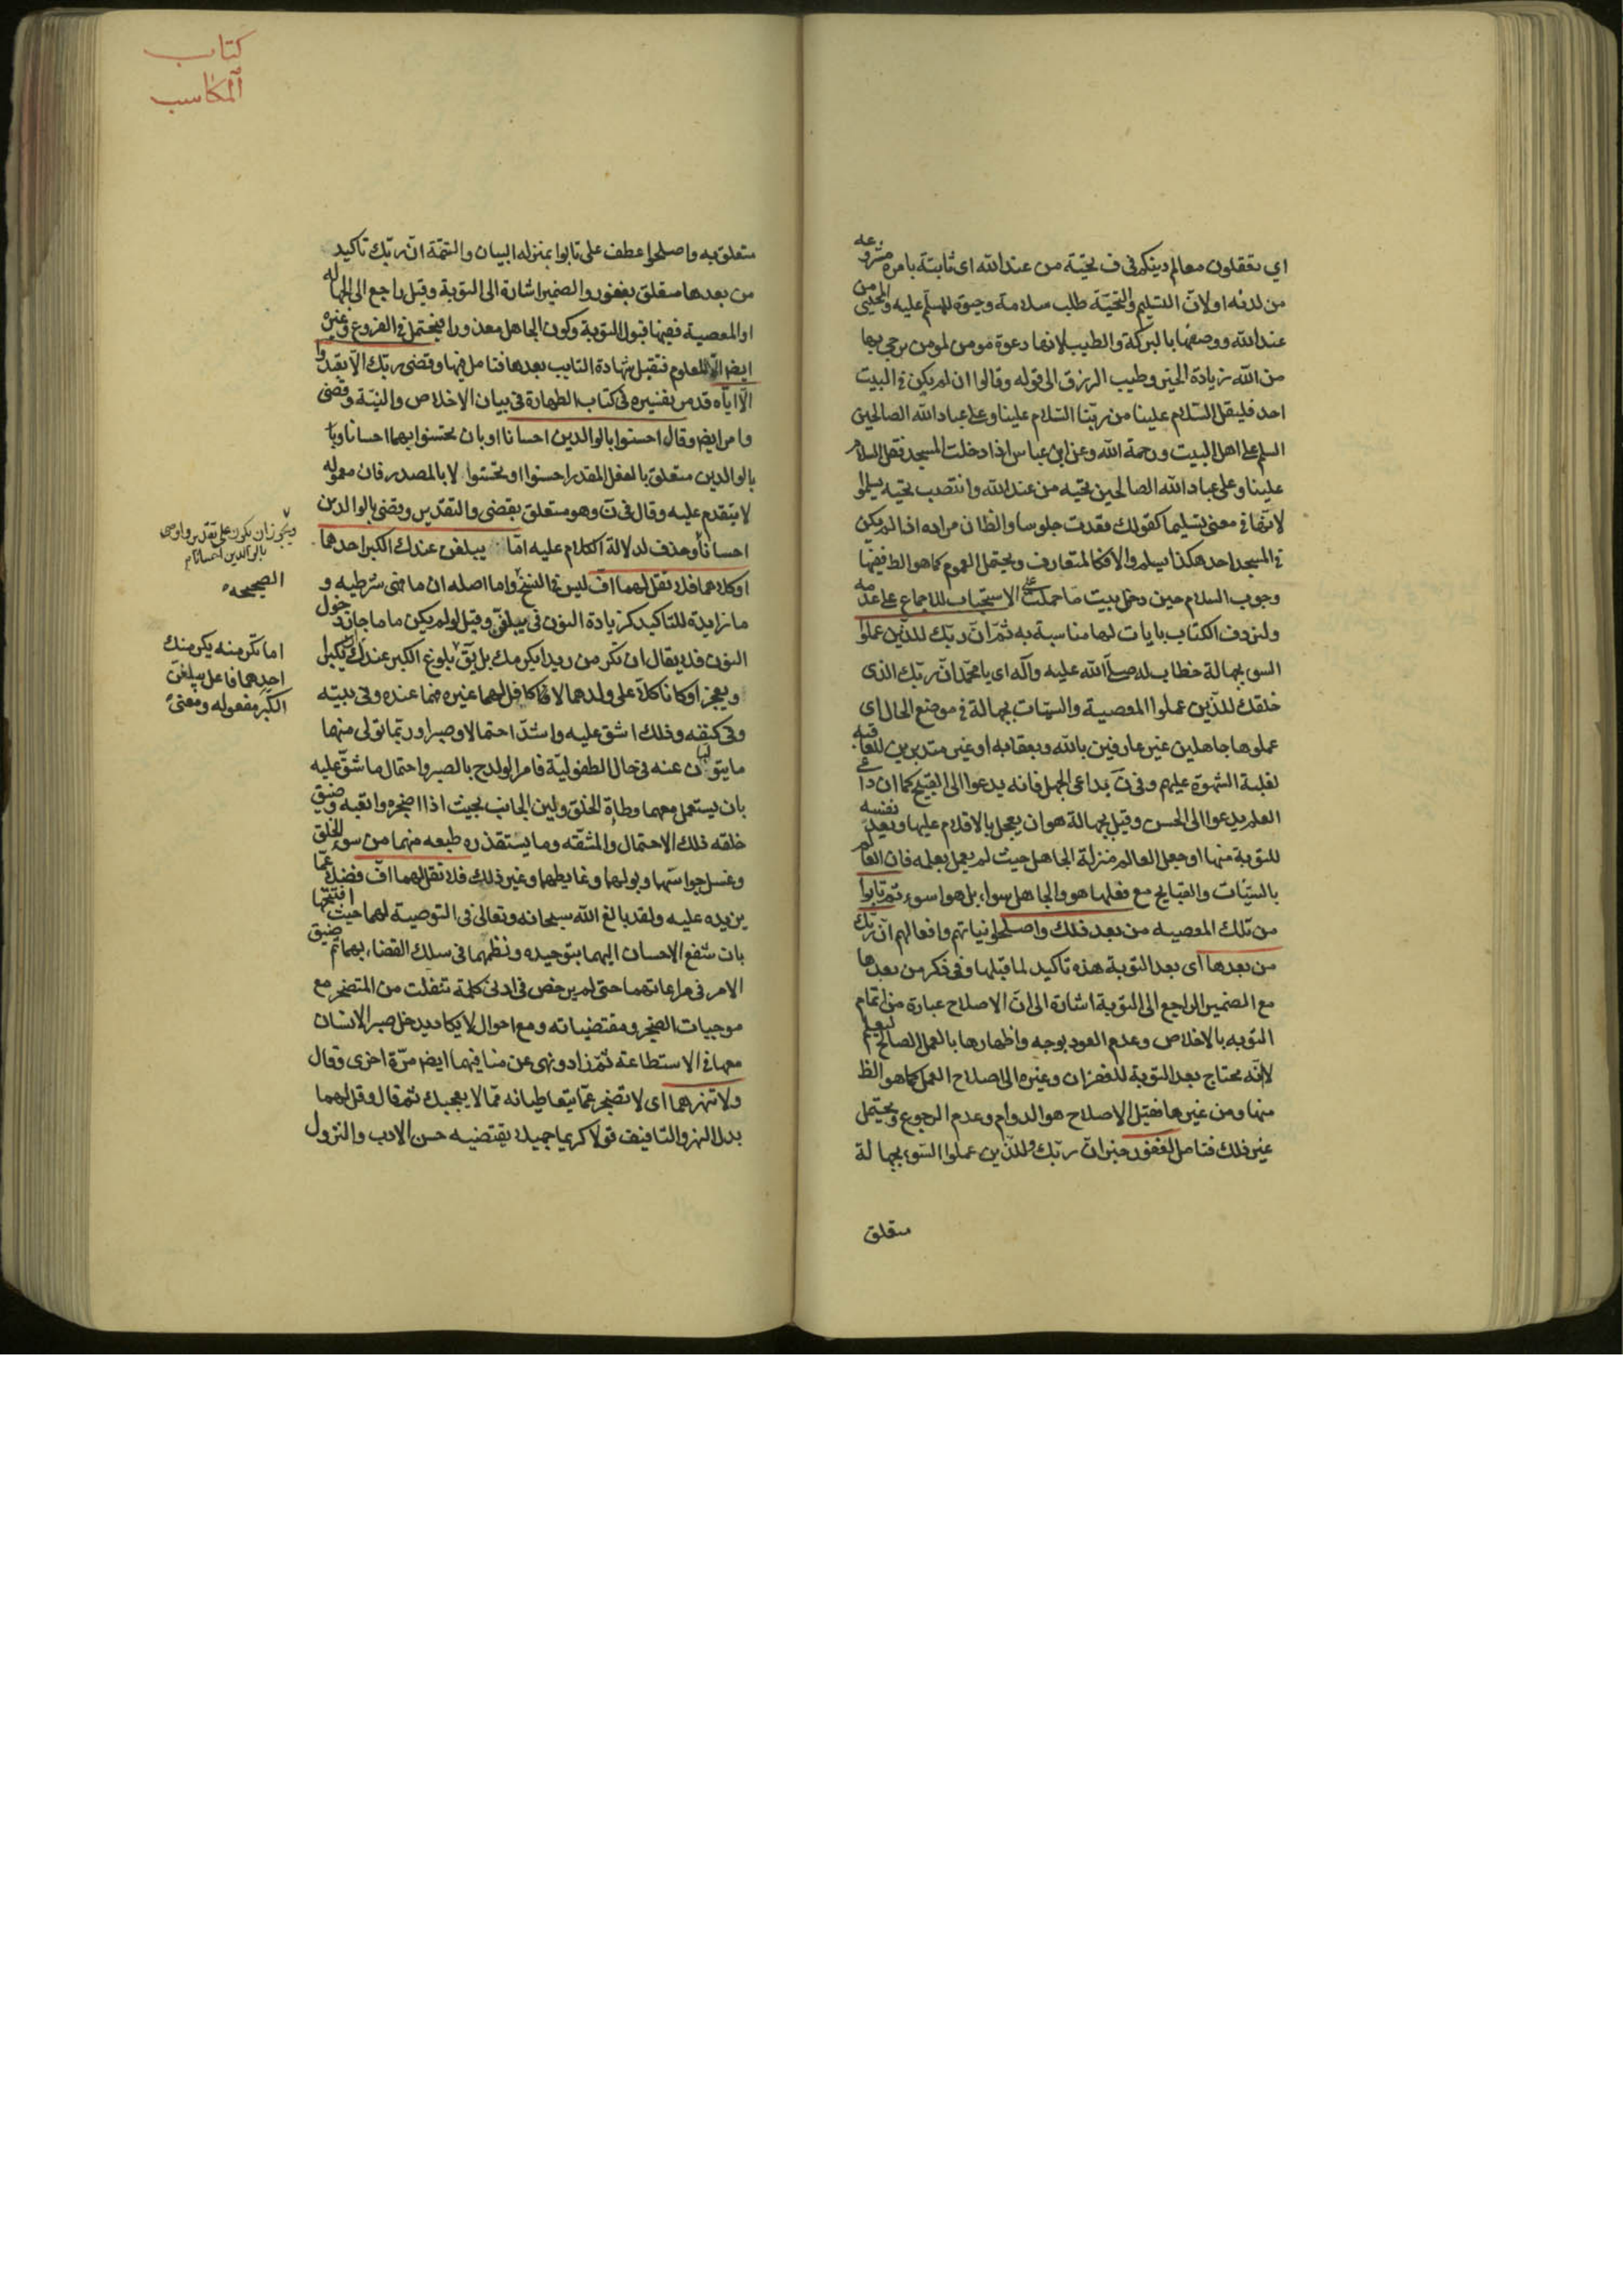 اي تعقلون معالم دينكم في ف تحيّة من عند الله اى ثابتة بامره مشروعه
من لدنه او لانّ التسليم والتحيّة طلب سلامة وحيوة للمسلّم عليه والمحيّى من
عند الله ووصفها بالبركة والطيب لانها دعوة مومن لمومن يرجى بها
من الله زيادة الخير وطيب الرزق الى قوله وقالوا ان لم يكن في البيت
احد فليقل السّلام علينا من ربّنا السّلام علينا وعلى عباد الله الصالحين
السلم على اهل البيت ورحمة الله وعن ابن عباس اذا دخلت المسجد فقل السلام
علينا وعلى عباد الله الصالحين تحيه من عند الله وانتصب تحيه بسلموا
لانّها في معنى تسليما كقولك قعدت جلوسا والظان مراده اذا لم يكن
في المسجد احد هكذا يسلم والا فكالمتعارف ويحتمل العموم كما هو الظ ففيها
وجوب السلام حين دخل بيت ما حملت على الاستحباب للاجماع على عدمه
ولنردف الكتاب بايات لها مناسبة به ثمّ انّ ربّك للذّين عملوا
السوء بجهالة خطاب له صلّى الله عليه وآله اى يا محمّد انّ ربّك الذى
خلقك للذّين عملوا المعصية والسيّات بجهالة في موضع الحال اى
عملوها جاهلين غير عارفين بالله وبعقابه او غير متدبرين للعاقبه
لغلبة الشهوة عليهم وفى نَ بداعى الجهل فانه يدعوا الى القبيح كما ان داعى
العلم يدعوا الى الحسن وقيل بجهالة هو ان يعجل بالاقدام عليها ويعد نفسه
للتوبة منها او جعل العالم منزلة الجاهل حيث لم يعمل بعلمه فان العالم
بالسيّئات والقبايح مع فعلها هو والجاهل سواء بل هو اسوء ثم تابوا
من تلك المعصيه من بعد ذلك واصلحوا نياتهم وافعالهم انّ ربّك
من بعدها اى بعد التوبة هذه تاكيد لما قبلها وفى ذكر من بعدها
مع الضمير الراجع الى التوبة اشارة الى انّ الاصلاح عبارة من اتمام
التوبه بالاخلاص وعدم العود بوجه واظهارها بالعمل الصالح ليعلم
لانّه محتاج بعد التوبة للغفران وغيره الى اصلاح العمل كما هو الظ
منها ومن غيرها فقيل الاصلاح هو الدوام وعدم الرجوع ويحتمل
غير ذلك فتامل لغفور خبر انّ ربّك وللذّين عملوا السّوء بجهالة
متعلق
كتاب
المكاسب
متعلق به واصلحوا عطف على تابوا بمنزله البيان والتتمّة انّ ربّك تاكيد
من بعدها متعلق بغفور والضمير اشارة الى التوبة وقيل راجع الى الجهاله
او المعصية ففيها قبول التوبة وكون الجاهل معذورا فيحتمل في الفروع وغيره
ايض الّا المعلوم فتقبل شهادة التايب بعدها فتامل فيها وقضى ربّك الّا تعبدوا
الّا ايّاه قد مر تفسيره فى كتاب الطهارة فى بيان الاخلاص والنيّة وقضى
وامر ايض وقال احسنوا بالوالدين احسانا او بان تحسنوا بهما احسانا وبا
بالوالدين متعلق بالفعل المقدر احسنوا او تحسنوا لا بالمصدر فان معموله
لا يتقدم عليه وقال فى نَ وهو متعلق بقضى والتقدير وقضى بالوالدين
احسانا وحذف لدلالة الكلام عليه امّا يبلغن عندك الكبر احدهما
اوكلاهما فلا تقل لهما افّ ليس في النسخ واما اصله ان ما فى شرطيه و
ما زايدة للتاكيد كزيادة النون فى يبلغن وقيل لو لم يكن ما ما جاز دخول
النون فلا يقال ان تكرمن زيدا يكرمك بل يق بلوغ الكبر عندك ان يكبرا
ويعجزا وكانا كلّا على ولدهما لا كافل لهما غيره فهما عنده وفى بيته
وفى كنفه وذلك اشق عليه واشدّ احتمالا وصبرا وربّما تولى منها
ما يتوليان عنه فى حال الطفوليّة فامر الولد ح بالصبر واحتمال ما شقّ عليه
بان يستعمل معهما وطاة الخلق ولين الجانب بحيث اذا اضجره واتعبه وضيق
خلقه ذلك الاحتمال والمشقه وما يستقذره طبعه منهما من سوء الخلق
وغسل جواستهما وبولهما وغايطهما وغير ذلك فلا تقل لهما افّ فضلا عمّا
يزيده عليه ولقد بالغ الله سبحانه وتعالى فى التوصية لهما حيث افتتحها
بان شفع الاحسان اليهما بتوحيده ونظمهما فى سلك القضاء بهما ثم ضيق
الامر فى مراعاتهما حتى لم يرخص فى ادنى كلمة تنفلت من المتضجر مع
موجبات الضجر ومقتضياته ومع احوال لا يكاد يدخل صبر الانسان
معها في الاستطاعة ثمّ زاد ونهى عن منافيهما ايض مرّة اخرى وقال
ولا تنهرهما اى لا تضجر عمّا يتعاطيانه ممّا لا يعجبك ثم قال وقل لهما
بدل النهر والتافيف قولا كريما جميلا يقتضيه حسن الادب والنزول
ويجوز ان يكون على تقدير واوصى
بالوالدين احسانا م
الصحيحه
اما تكرمنه يكرمنك
احدهما فاعل يبلغنّ
الكبر مفعوله ومعنى